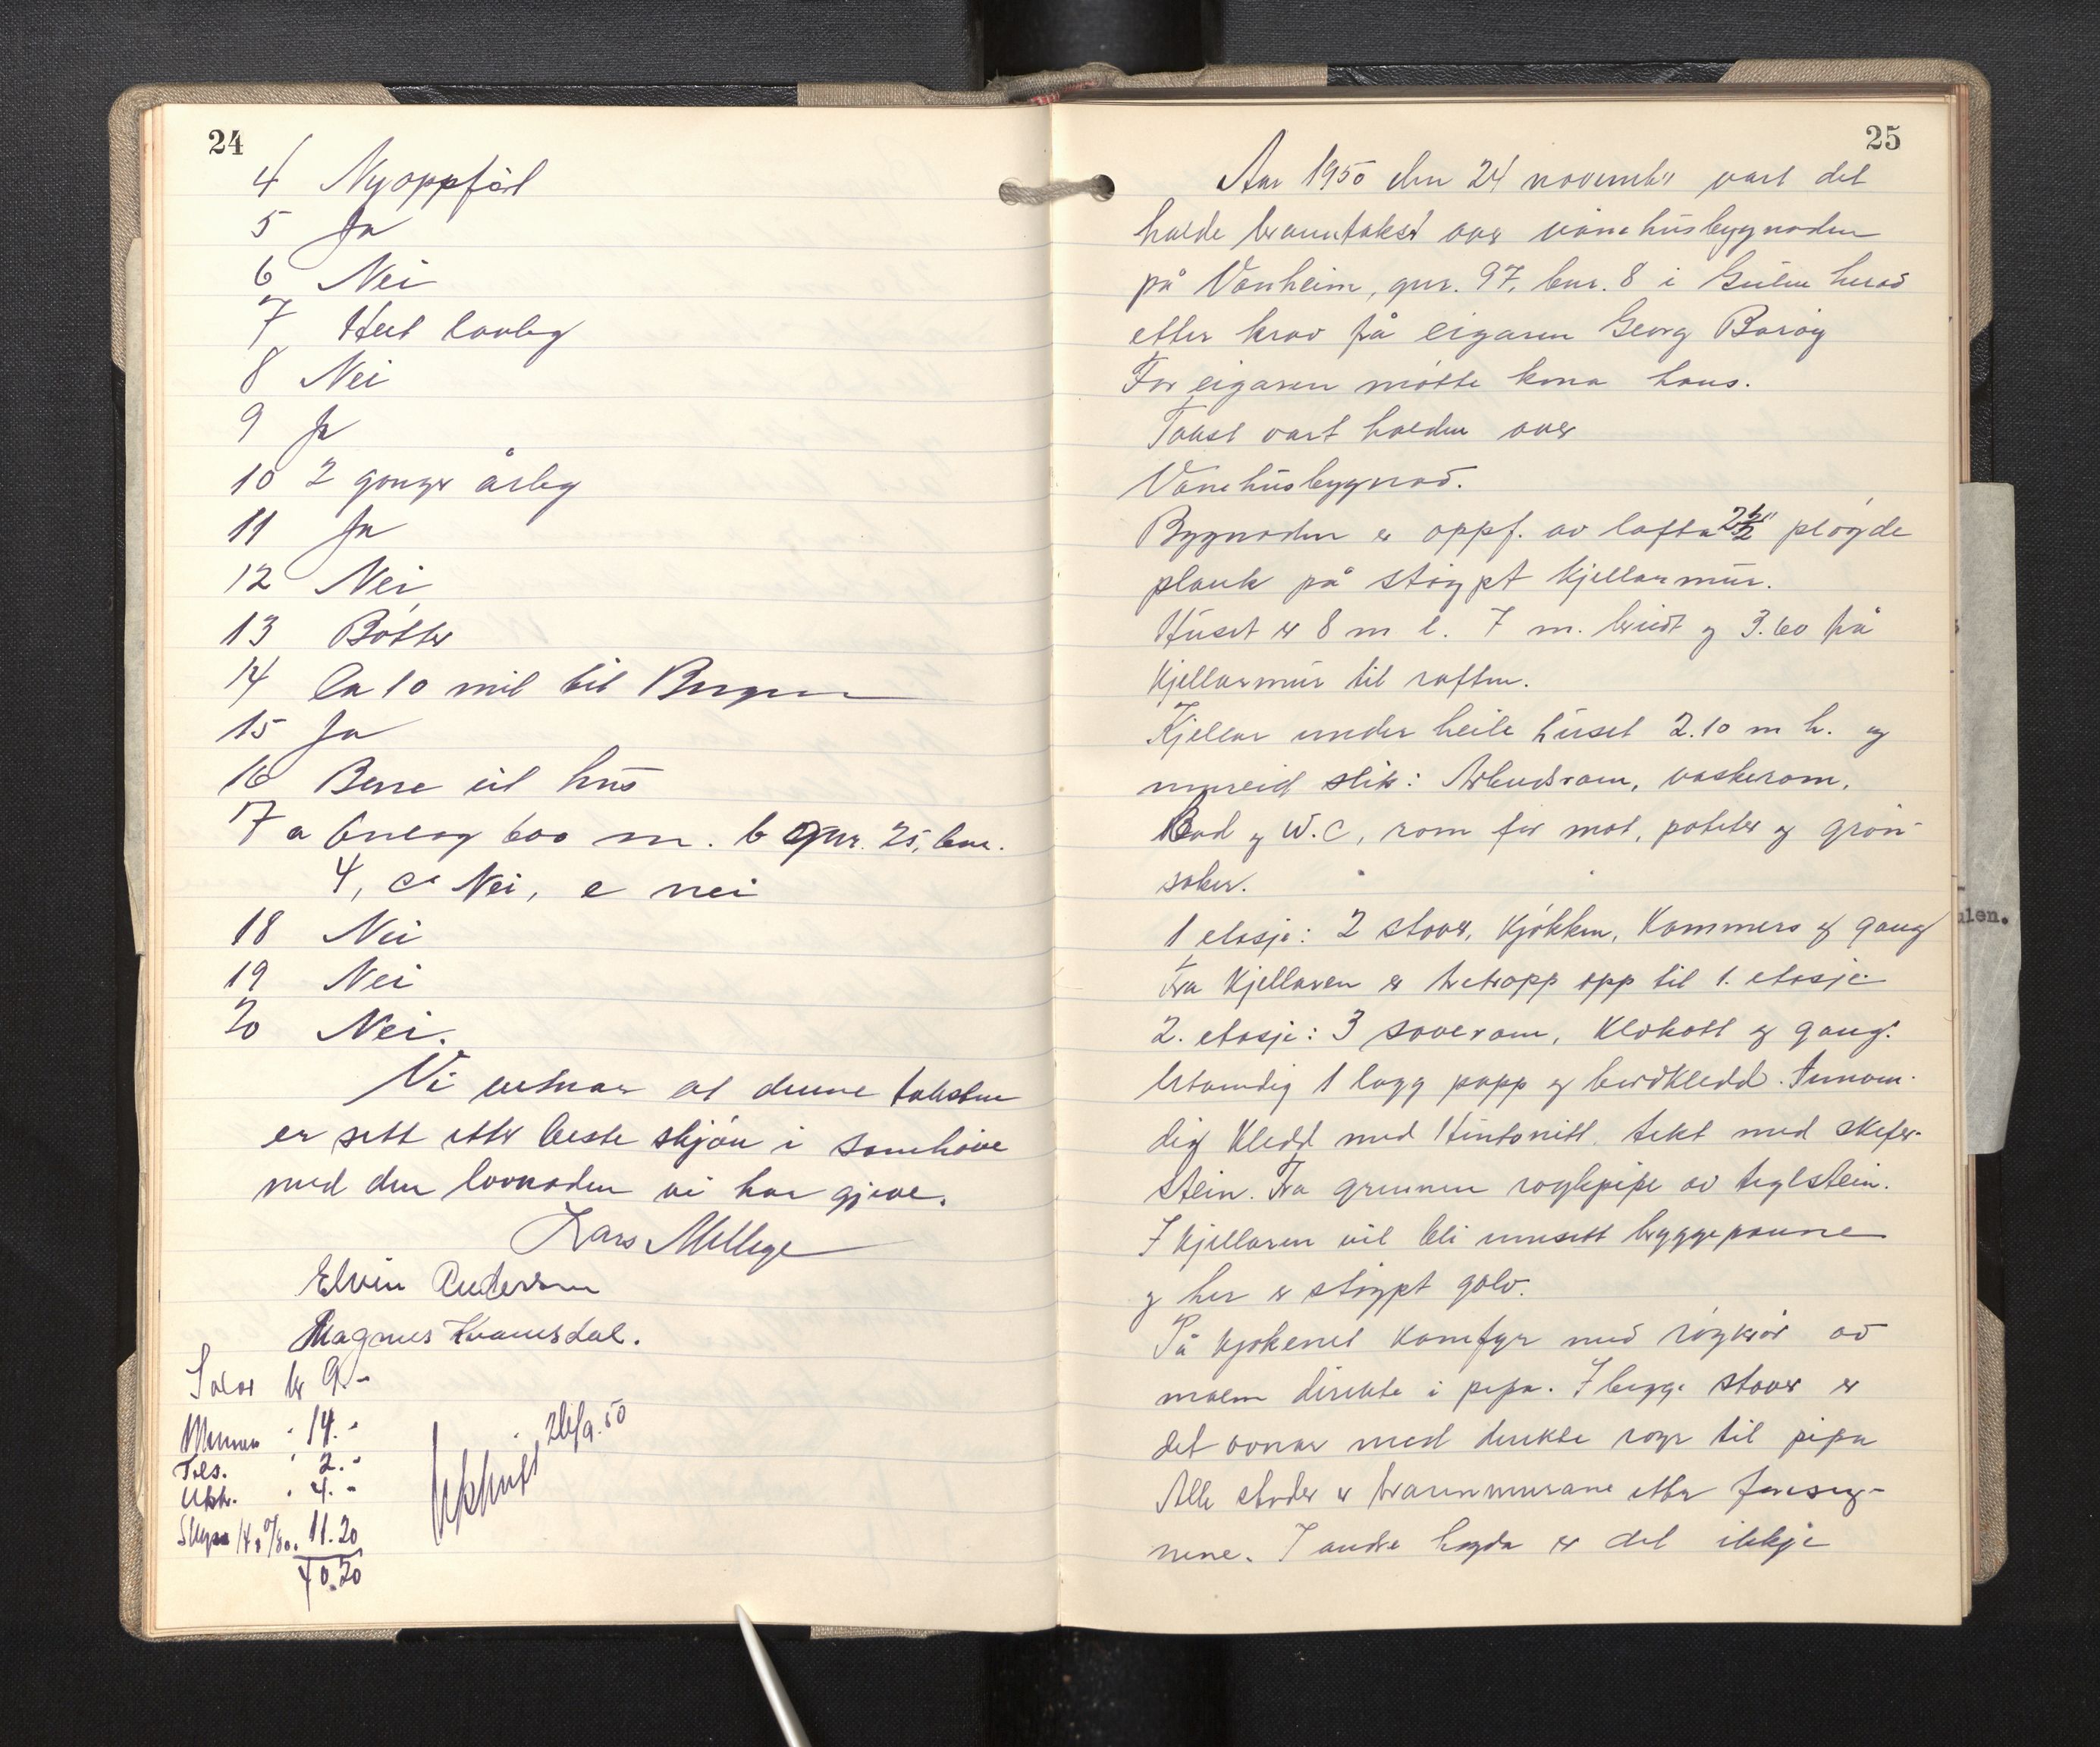 24
4 Nyoppförd
5 Ja
6 Nei
7 Heil lovleg
8 Nei
9 Ja
10 2 gonger årleg
11 Ja
12 Nei
13 Bötter
14 Ca 10 mil til Bergen
15 Ja
16 Berre eit hus
17 a Omlag 600 m. b gnr. 25, bnr.
4, c Nei, e nei
18 Nei
19 Nei
20 Nei.
Vi vitnar at denne taksten
er sett etter beste skjön i samhöve
med den lovnaden vi har gjeve.
Lars Mellege
Elvin Andersen
Magnus Kvamsdal.
Salar kr 9.-
Mennen " 14.-
Tils. " 2.-
Utskr. " 4.-
Skyss 14 0/80. 11.20
40.20
Utskrift 26/9.50
25
Aar 1950 den 24 november vart det
halde branntakst over vånehusbygnaden
på Vonheim, gnr. 97, bnr. 8 i Gulen herad
etter krav frå eigaren Georg Boröy
For eigaren mötte kona hans.
Takst vart halden over
Vånehusbygnad.
Bygnaden er oppf. av lafta 2½" plögde
plank på stöypt kjellarmur.
Huset er 8 m l. 7 m. breidt og 3.60 frå
kjellarmur til raften.
Kjellar under heile huset 2.10 m h. og
innreid slik: Arbeidsrom, vaskerom,
Bad og W.C, rom for mat, poteter og grön-
saker.
1 etasje: 2 stover, kjökken, kammers og gang
Fra kjellaren er tretrapp opp til 1. etasje
2. etasje: 3 soverom, klokott og gang.
Utvendig 1 lagg papp og bordkledd. Innven-
dig kledd med Huntonitt, tekt med skifer-
stein. Fra grunnen röykpipe av teglstein.
I kjellaren vil bli innsett bryggepanne
og her er stöypt golv.
På kjökenet komfyr med röykrör av
malm direkte i pipa. I begge stover er
det ovnar med direkte röyr til pipa
Alle stader er brannmurane etter foreseg-
nene. I andre högda er det ikkje
ulen.